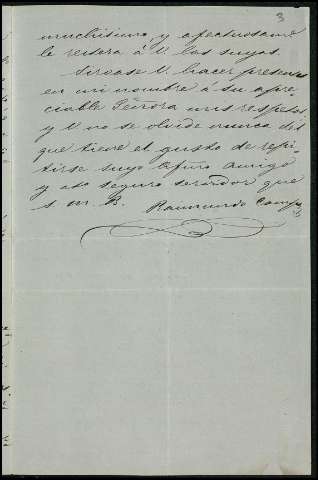 3
muchisimo, y afectuosame
le reitera á V. las suyas.
Sirvase V. hacer presentes
en mi nombre á su apre-
ciable Señora mis respetos
y V. no se olvide nunca del
que tiene el gusto de repe-
tirse suyo afmo amigo
y ato seguro servidor que
s. m. B.
Raimundo